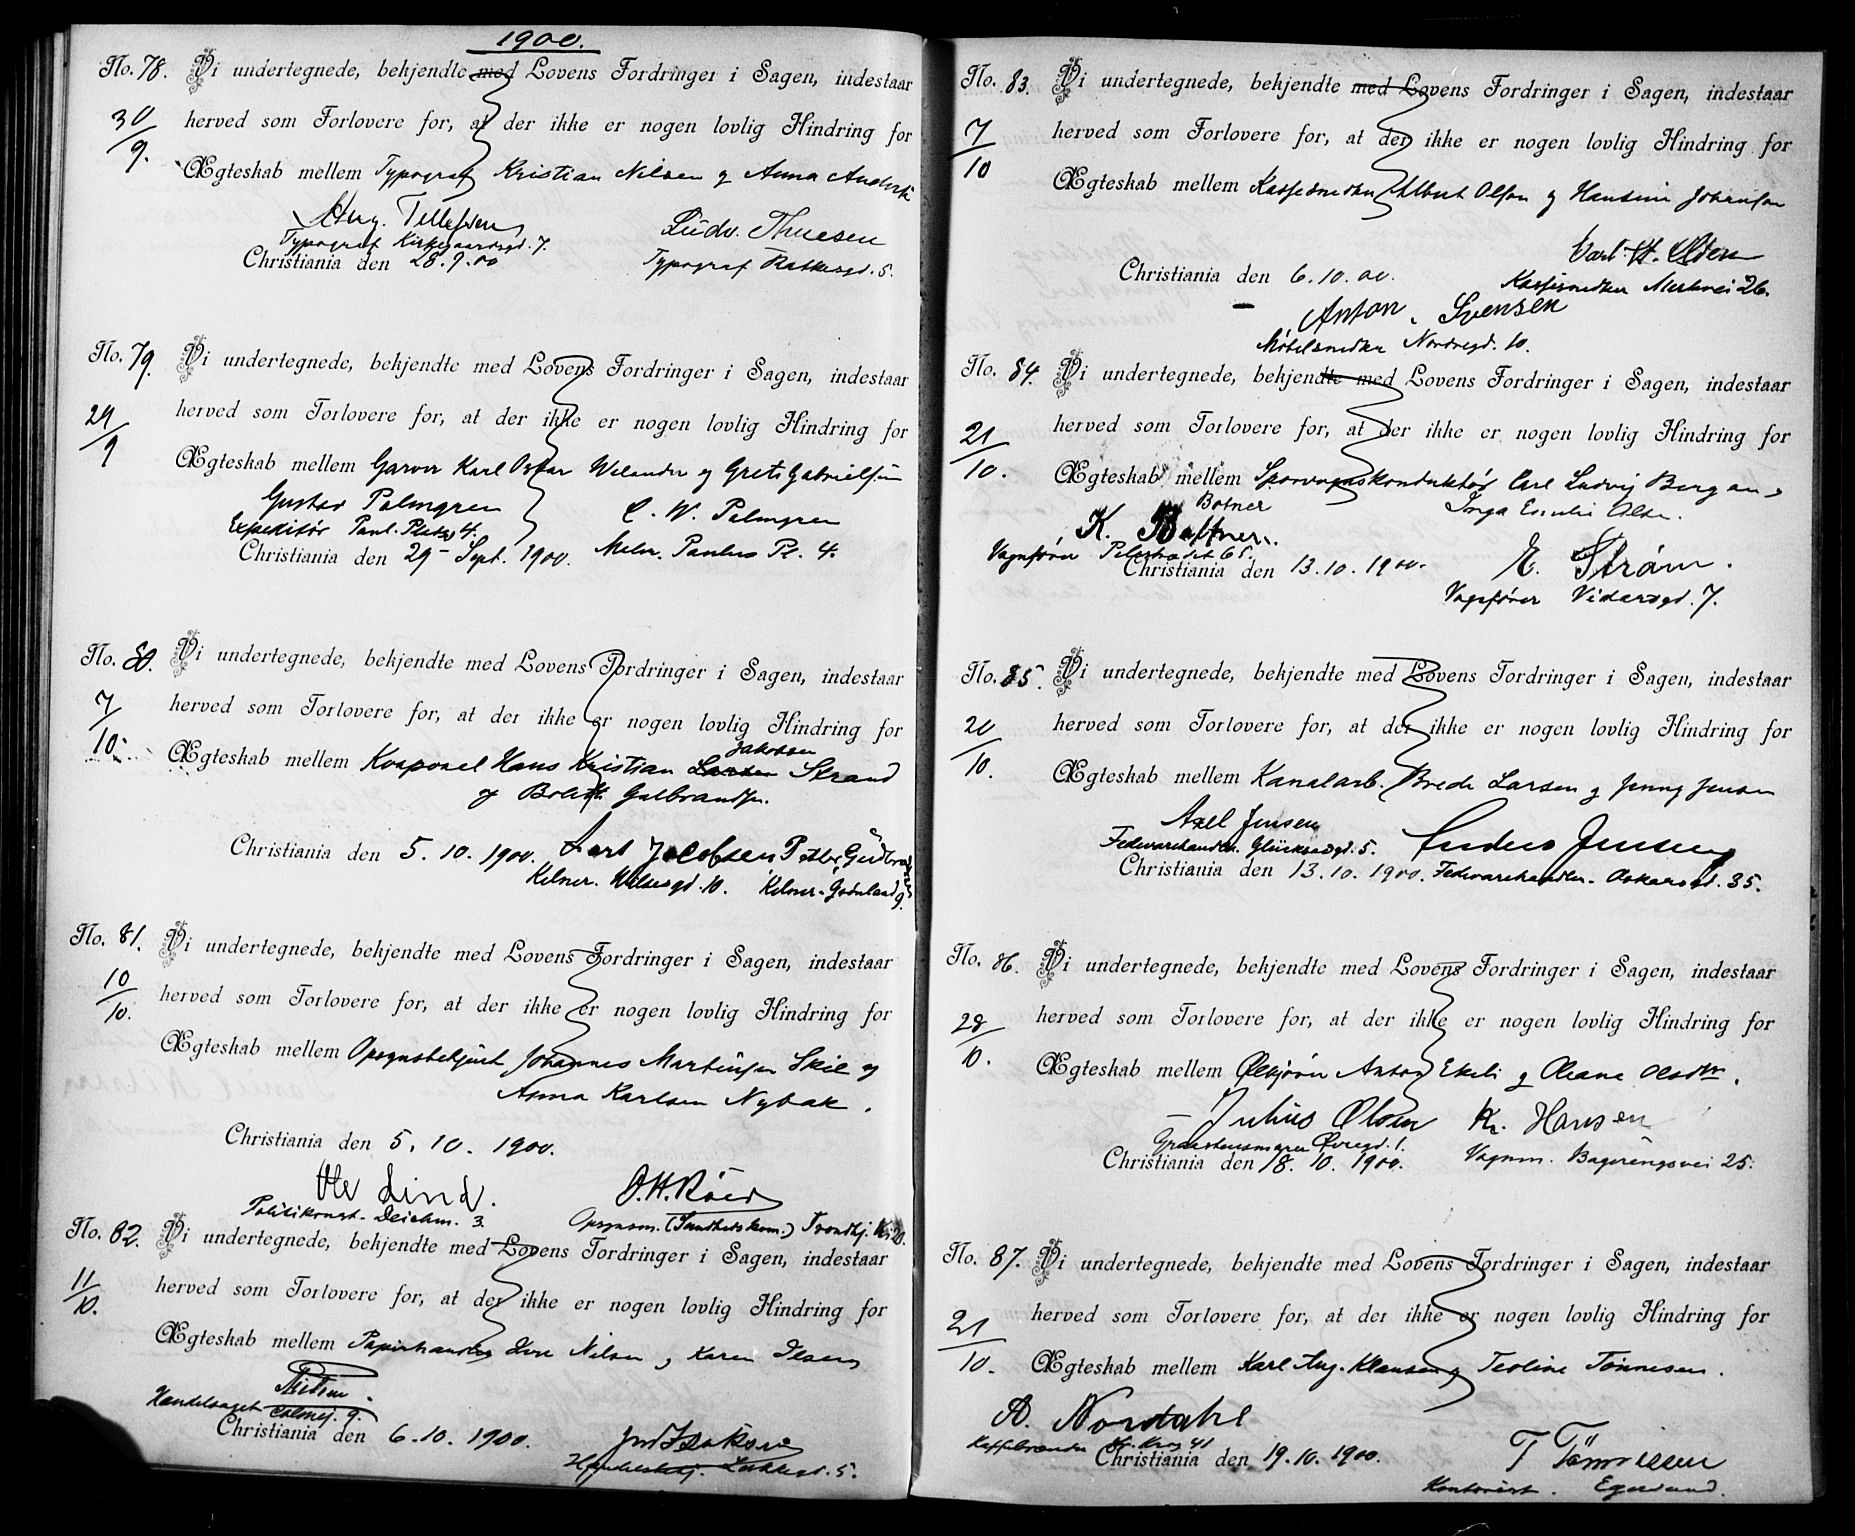 1900.
No. 78. Vi undertegnede, bekjendte med Lovens Fordringer i Sagen, indestaar
30/9. herved som Forlovere for, at der ikke er nogen lovlig Hindring for
Ægteskab mellem Typograf Kristian Nilsen og Anna
Aug. Tellefsen Ludv. Thuesen
Typograf Kirkegaardsgd. 7. Typograf Rathkesgd. 5.
Christiania den 28.9.00
No. 79. Vi undertegnede, bekjendte med Lovens Fordringer i Sagen, indestaar
29/9 herved som Forlovere for, at der ikke er nogen lovlig Hindring for
Ægteskab mellem Garver Karl Oskar Welander og Grete Gabrielsen
Gustav Palmgren C. W. Palmgren
Expeditør Paul. Plads 4. Maler. Paulus Pl. 4.
Christiania den 29 - Sept. 1900.
No. 80. Vi undertegnede, bekjendte med Lovens Fordringer i Sagen, indestaar
7/10. herved som Forlovere for, at der ikke er nogen lovlig Hindring for
Jakobsen
Ægteskab mellem Korporal Hans Kristian Larsen Strand
og Bolette Gulbrandsen.
Christiania den 5.10.1900. Jacobsen
Kelner. 10. Kelner. Grønland 9.
No. 81. Vi undertegnede, bekjendte med Lovens Fordringer i Sagen, indestaar
10/10. herved som Forlovere for, at der ikke er nogen lovlig Hindring for
Ægteskab mellem Opsynsbetjent Johannes Martinsen Skie og
Anna Karlsen Nybak.
Christiania den 5.10.1900.
Ole Lind. O. H. Röed
Politikonst. Deichm. 3. Opsynsm. (Sundhetskom.) Trondhj. 20.
No. 82. Vi undertegnede, bekjendte med Lovens Fordringer i Sagen, indestaar
11/10. herved som Forlovere for, at der ikke er nogen lovlig Hindring for
Ægteskab mellem Papirhandler Nilsen og Karen Olsen
Christiania den 6.10.1900. Isaksen
5.
No. 83. Vi undertegnede, bekjendte med Lovens Fordringer i Sagen, indestaar
7/10 herved som Forlovere for, at der ikke er nogen lovlig Hindring for
Ægteskab mellem Kassesnedker Albert Olsen og Hansine Johansen
Carl W. Olsen
Christiania den 6.10.00. Kassesnedker 26.
Anton Svensen
Møbelsnedker Nordregd. 10.
No. 84. Vi undertegnede, bekjendte med Lovens Fordringer i Sagen, indestaar
21/10. herved som Forlovere for, at der ikke er nogen lovlig Hindring for
Ægteskab mellem Sporvognskonduktør Carl Ludvig Bergan og
Botner Inga Emilie Olsen.
K. Bottner.
Vognfører Pilestrædet 65.
Christiania den 13.10.1900. E. Strøm.
Vognfører Vidarsgd. 7.
No. 85. Vi undertegnede, bekjendte med Lovens Fordringer i Sagen, indestaar
20/10. herved som Forlovere for, at der ikke er nogen lovlig Hindring for
Ægteskab mellem Kanalarb. Brede Larsen og Jenny Jensen
Axel Jensen Anders Jensen
Fedevarehandler. Glücksbgd. 5.
Christiania den 13.10.1900. Fedevarehandler. Oskarsgd. 35.
No. 86. Vi undertegnede, bekjendte med Lovens Fordringer i Sagen, indestaar
28/10. herved som Forlovere for, at der ikke er nogen lovlig Hindring for
Ægteskab mellem Ølkjører Anton Ekeli og Oleane Olsdtr.
Julius Olsen Kr. Hansen
1.
Christiania den 18.10.1900. Vognm. 25.
No. 87. Vi undertegnede, bekjendte med Lovens Fordringer i Sagen, indestaar
21/10. herved som Forlovere for, at der ikke er nogen lovlig Hindring for
Ægteskab mellem Karl Aug. Klausen og Teoline Tönnesen.
A. Nordahl
Kaffebrænder 41
Christiania den 19.10.1900. T Tönnissen
Kontorist. Egersund.